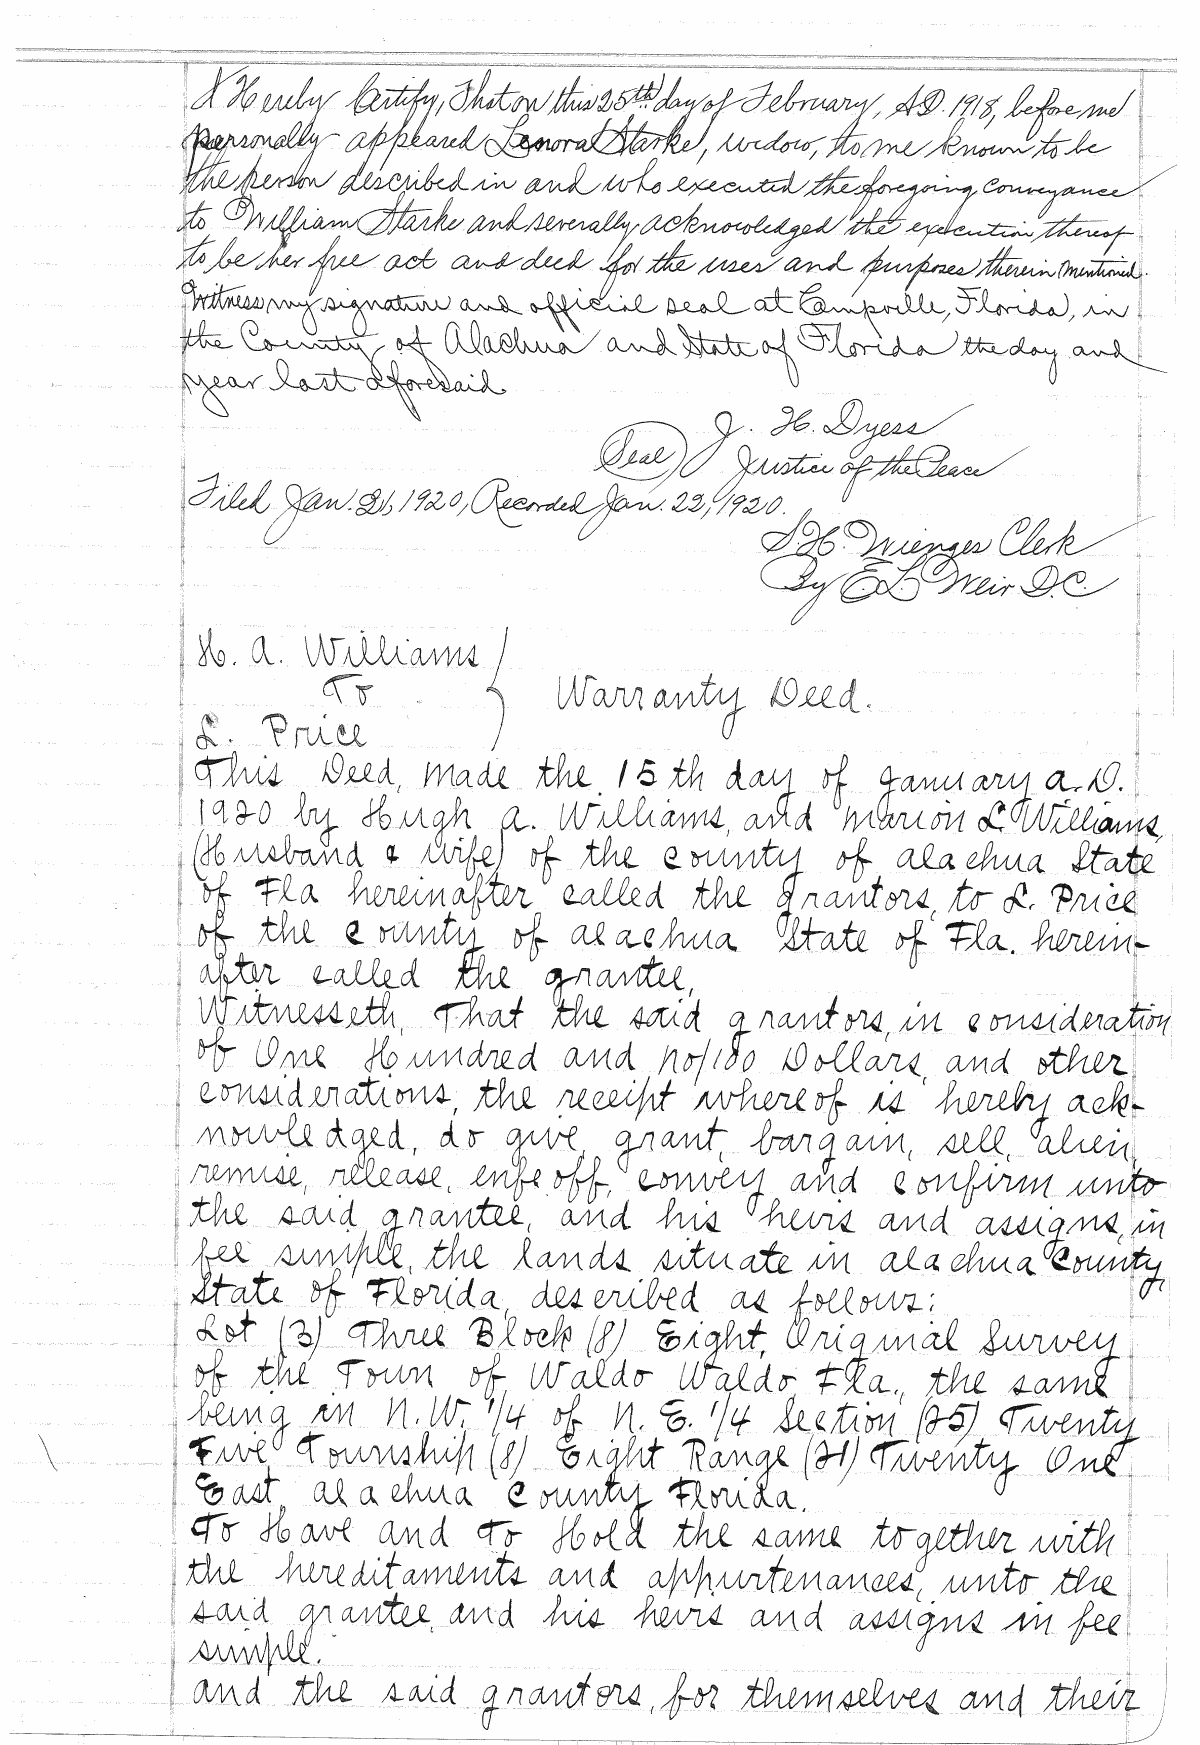 I Hereby Certify, That on this 25th day of February, A.D. 1918, before me
personally appeared Lenora Starke, widow, to me known to be
the person described in and who executed the foregoing conveyance
to William Starke and severally acknowledged the execution thereof
to be her free act and deed for the uses and purposes therein mentioned.
Witness my signature and official seal at Campville, Florida, in
the County of Alachua and State of Florida the day and
year last aforesaid.
J. H. Dyess
(Seal) Justice of the Peace
Filed Jan. 21, 1920, Recorded Jan. 22, 1920.
S. H. Wienges Clerk
By E. L. Weir D.C.
H. A. Williams
To Warranty Deed.
L. Price
This Deed, made the 15th day of January A.D.
1920 by Hugh A. Williams, and Marion L. Williams,
(Husband & wife) of the county of Alachua State
of Fla hereinafter called the grantors, to L. Price
of the county of Alachua State of Fla. herein-
after called the grantee,
Witnesseth, That the said grantors, in consideration
of One Hundred and no/100 Dollars, and other
considerations, the receipt whereof is hereby ack-
nowledged, do give, grant, bargain, sell, alien,
remise, release, enfeoff, convey and confirm unto
the said grantee, and his heirs and assigns, in
fee simple, the lands situate in Alachua County,
State of Florida, described as follows:
Lot (3) Three Block (8) Eight, Original Survey
of the Town of Waldo Waldo, Fla., the same
being in N.W. 1/4 of N.E. 1/4 Section (25) Twenty
Five Township (8) Eight Range (21) Twenty One
East, Alachua County Florida.
To Have and To Hold the same together with
the hereditaments and appurtenances, unto the
said grantee, and his heirs and assigns in fee
simple.
and the said grantors, for themselves and their